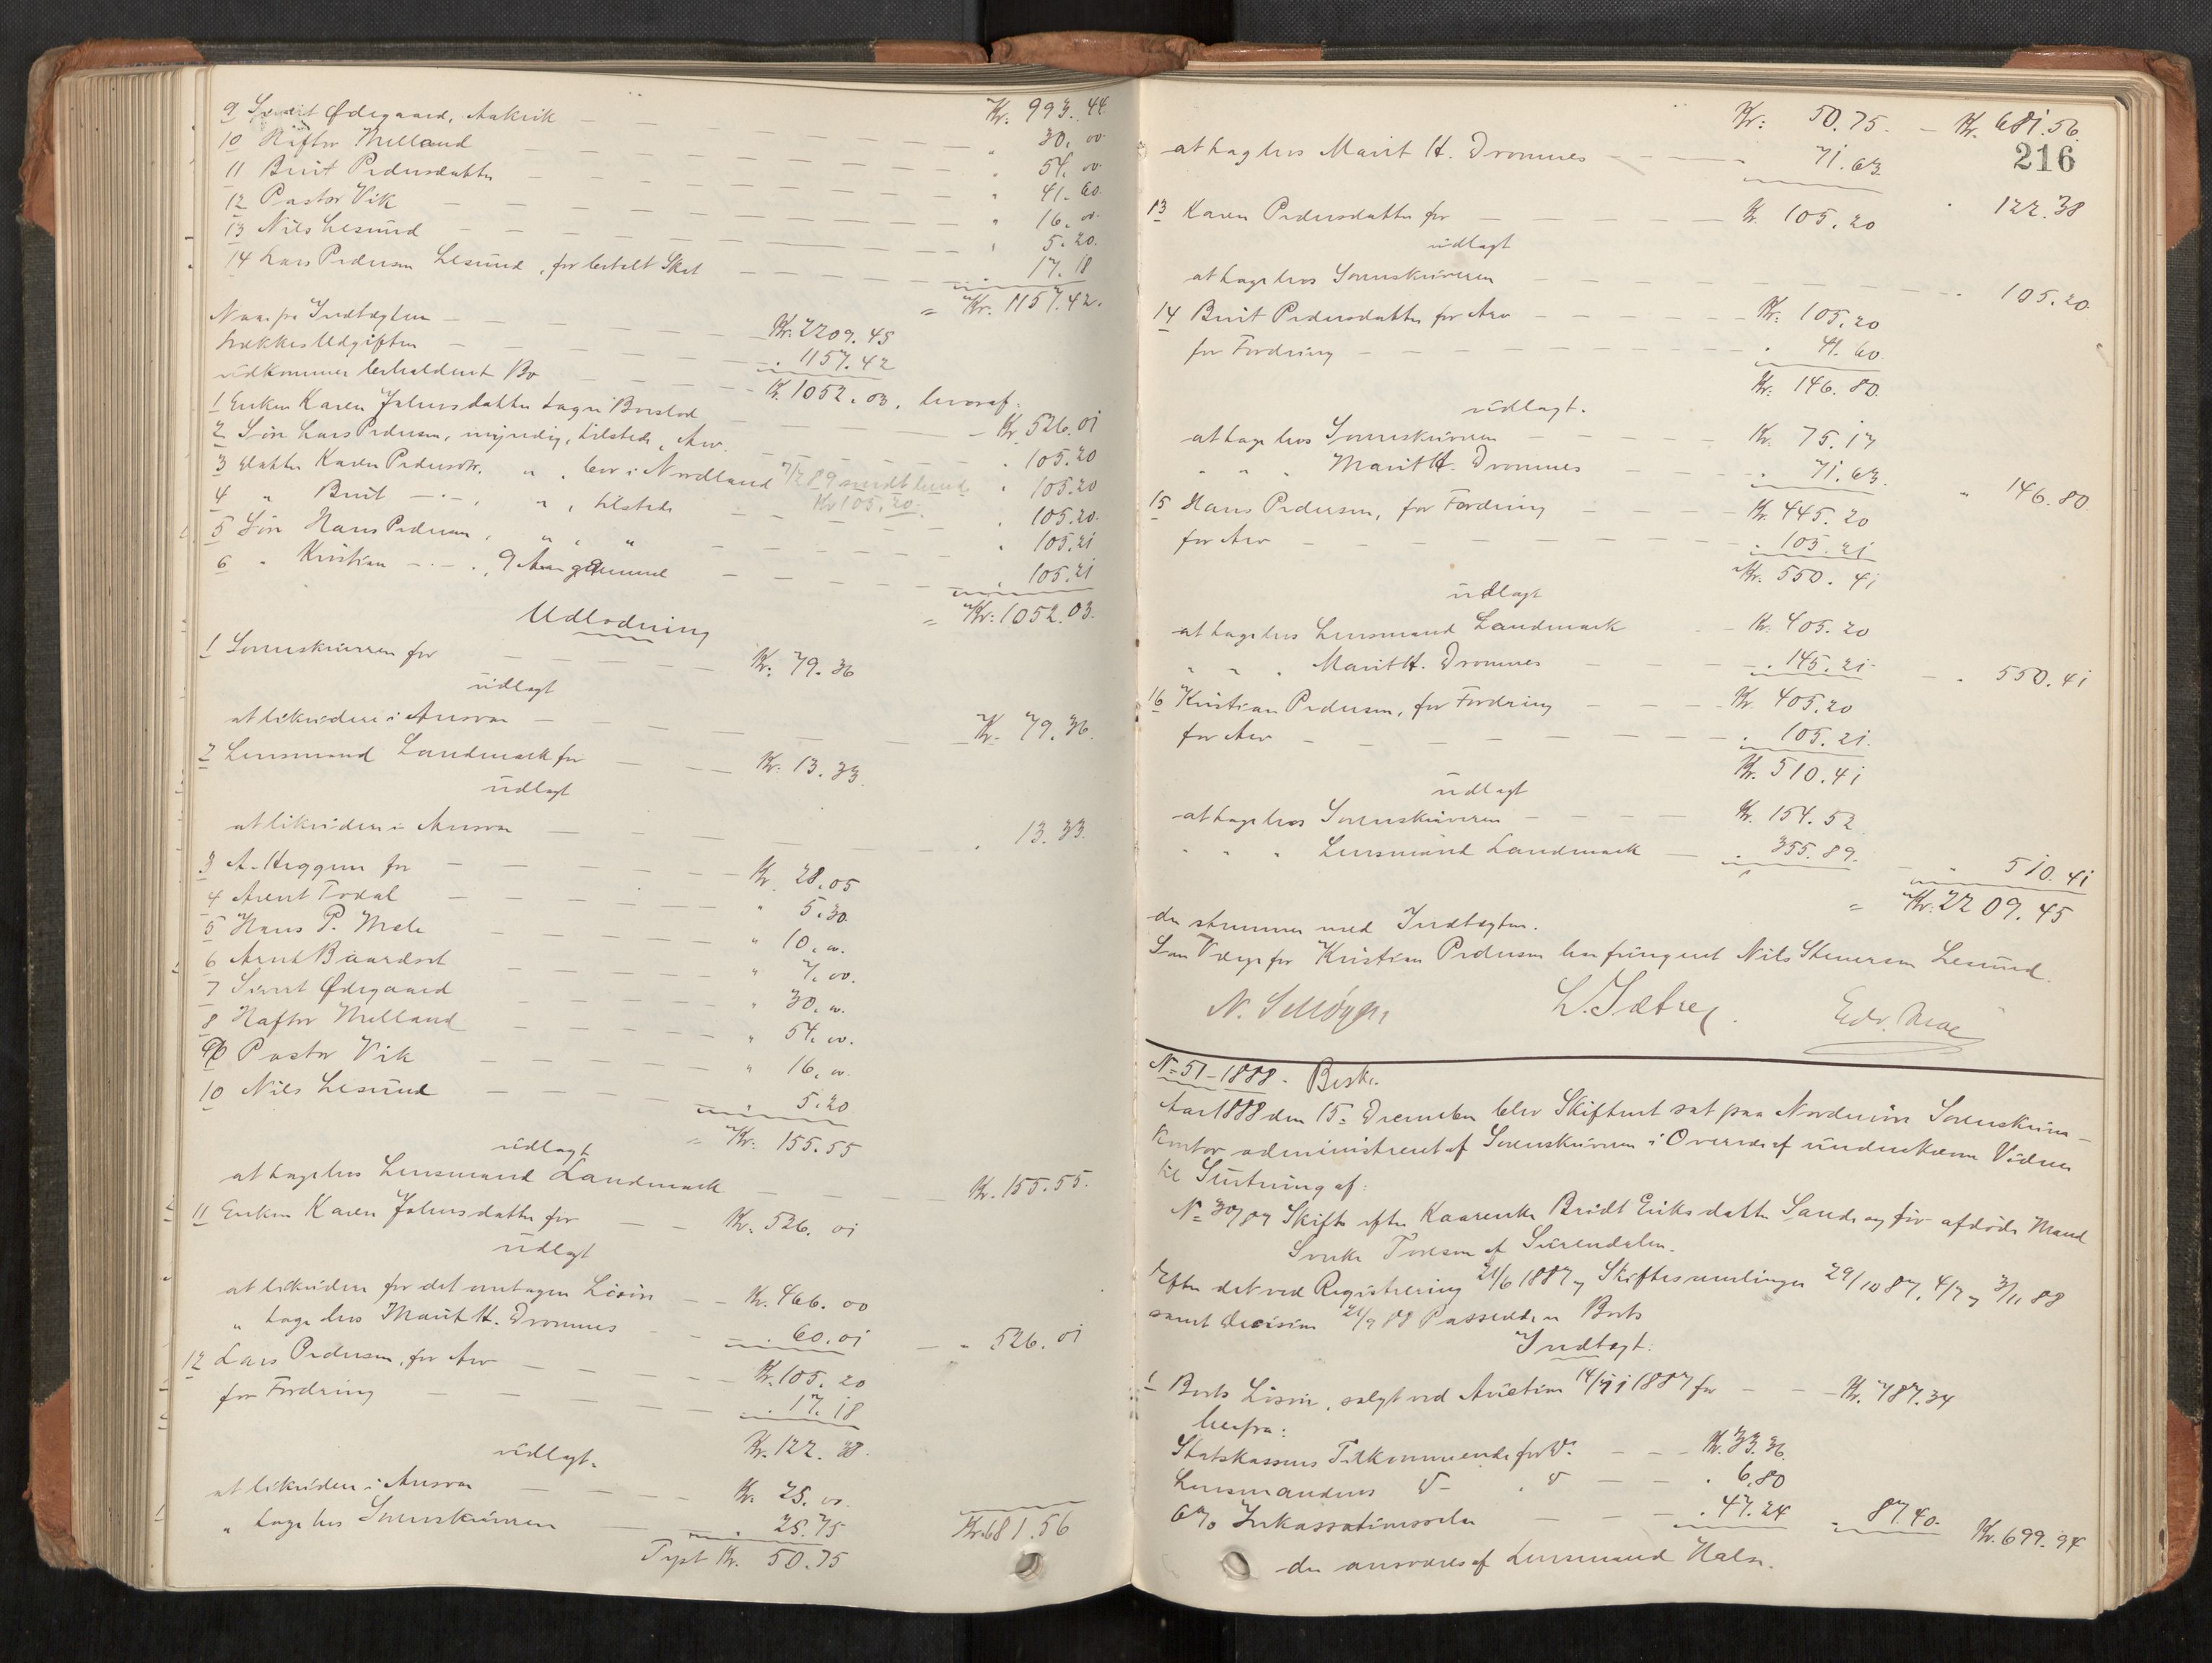 9 Sivert Ødegaard, Aakvik — Kr. 993.44
10 Haftor Melland — " 30.00
11 Berit Pedersdatter — " 54.00
12 Pastor Vik — " 41.60
13 Nils Lesund — " 16.00
14 Lars Pedersen Lesund, for betalt Skat — " 5.20
" 17.18
= Kr. 1157.42.
Naar fra Indtægten — Kr. 2209.45
trækkes Udgiften — " 1157.42
udkommer beholdent Bo — Kr. 1052.03, hvoraf:
1 Enken Karen Johnsdatter tager i Boeslod — Kr. 526.01
2 Søn Lars Pedersen, myndig, tilstede, Arv — " 105.20
3 datter Karen Pedersdtr. " , bor i Nordland 7/2 89 sendt hende Kr 105.20. " 105.20
4 " Berit —"—, " , tilstede — " 105.20
5 Søn Hans Pedersen, " , " — " 105.21
6 " Kristian —"—, 9 Aar gammel — " 105.21
= Kr: 1052.03.
Udlodning
1 Sorenskriveren for — Kr. 79.36
udlagt
at likvidere i Ansvar — Kr. 79.36.
2 Lensmand Landmark for — Kr. 13.33
udlagt
at likvidere i Ansvar — " 13.33.
3 A. Heggem for — Kr. 28.05
4 Arent Todal — " 5.30
5 Hans P. Mele — " 10.00
6 Arnt Baardset — " 7.00.
7 Sivert Ødegaard — " 30.00
8 Haftor Melland — " 54.00.
9 Pastor Vik — " 16.00
10 Nils Lesund — " 5.20
= Kr: 155.55
udlagt
at tage hos Lensmand Landmark — Kr. 155.55.
11 Enken Karen Johnsdatter for — Kr. 526.01
udlagt
at likvidere for det modtagen Løsøre — Kr. 466.00
" tage hos Marit H. Dromnes — " 60.01 — " 526.01
12 Lars Pedersen, for Arv — Kr. 105.20
for Fordring — " 17.18
Kr. 122.38.
udlagt.
at likvidere i Ansvar — Kr. 25.00.
" tage hos Sorenskriveren — " 25.75
Tyst Kr. 50.75 Kr. 681.56
Kr: 50.75. — Kr. 681.56
216
at tage hos Marit H. Dromnes — " 71.63
" 122.38
13 Karen Pedersdatter for — Kr. 105.20
udlagt
at tage hos Sorenskriveren — " 105.20.
14 Berit Pedersdatter for Arv — Kr: 105.20
for Fordring — " 41.60
Kr: 146.80.
udlagt.
at tage hos Sorenskriveren — Kr. 75.17
" " " Marit H. Dromnes — " 71.63. " 146.80.
15 Hans Pedersen, for Fordring — Kr. 445.20
for Arv — " 105.21
Kr. 550.41
udlagt
at tage hos Lensmand Landmark — Kr. 405.20
" " " Marit H. Dromnes — " 145.21 — " 550.41
16 Kristian Pedersen, for Fordring — Kr. 405.20
for Arv — " 105.21.
Kr. 510.41
udlagt
at tage hos Sorenskriveren — Kr. 154.52
" " " Lensmand Landmark — " 355.89. — " 510.41
= Kr: 2209.45
der stemmer med Indtægten.
Som Værge for Kristian Pedersen har fungeret Nils Steinersen Lesund.
L. Sætre
No 51 - 1888. Besk.
Aar 1888 den 15. December blev Skifteret sat paa Nordmøre Sorenskriver-
kontor administreret af Sorenskriveren i Overvær af underskrevne Vidner
til Slutning af:
No 30/87 Skifte efter Kaarenke Bridt Eriksdatter Sande og før afdøde Mand
Sivert Toresen af Surendalen.
Efter det ved Registrering 21/6 1887 og Skiftesamlinger 29/10 87, 4/7 og 3/11 88
samt decision 21/7 88 Passerede er Boets
Indtægt:
1 Boets Løsøre, solgt ved Auction 14/7 1887 for — Kr. 787.34
herfra:
Statskassens Tilkommende for Do — Kr. 33.36.
Lensmandens Do " Do — " 6.80
6% Inkassationssalær — " 47.24 " 87.40. Kr. 699.94
der ansvares af Lensmand Halse.